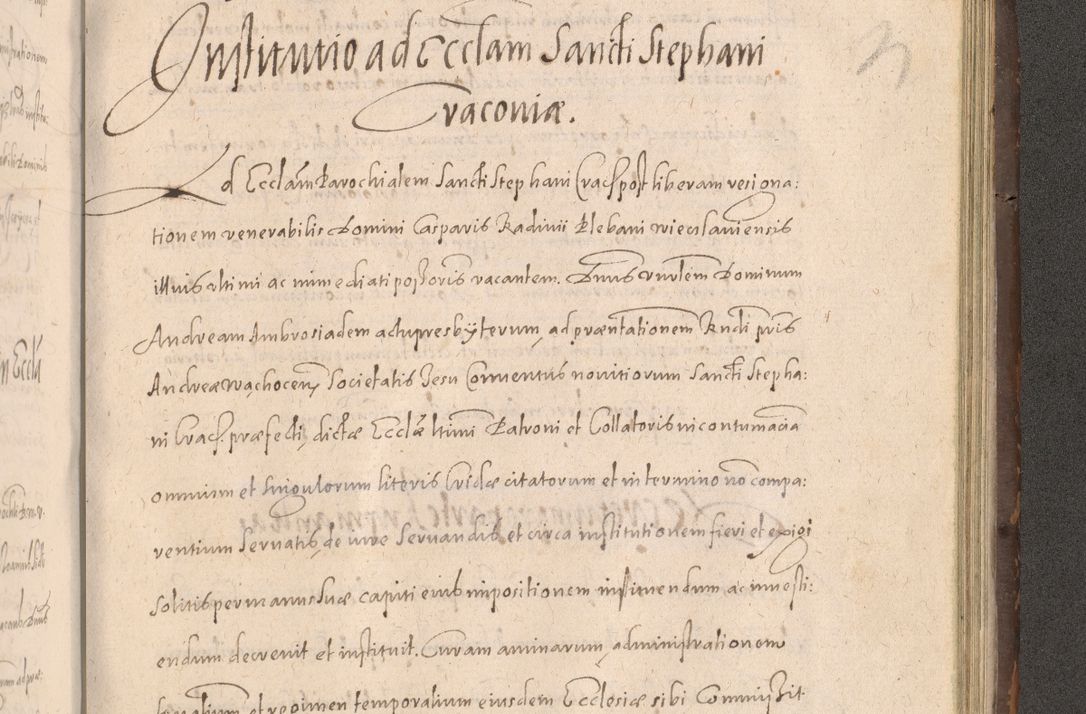 Institutio ad Ecclam Sancti Stephani
Cracoviæ.
Ad Ecclam Parochialem Sancti Stephani Crac. post liberam resigna:
tionem venerabilis Domini Casparis Radinii Plebani
illius ultimi ac immediati possoris vacantem. Dnus Dominum
Andream Ambrosiadem actu presbyterum, ad præntationem Rndi pris
Andreæ Societatis Jesu Conventus novitiorum Sancti Stepha:
ni Crac. præfecti, dictæ Ecclæ ltimi Patroni et Collatoris in contumaciam
omnium et singulorum literis Cridæ citatorum et in termino no compa:
rentium servatis de iure servandis et circa institutionem fieri et exigi
solitis per manus suæ capiti eius impositionem instituendum ac investi:
endum decrevit et instituit. Curam animarum, administrationem
et regimen temporalium eiusdem Ecclesiæ sibi Commisit